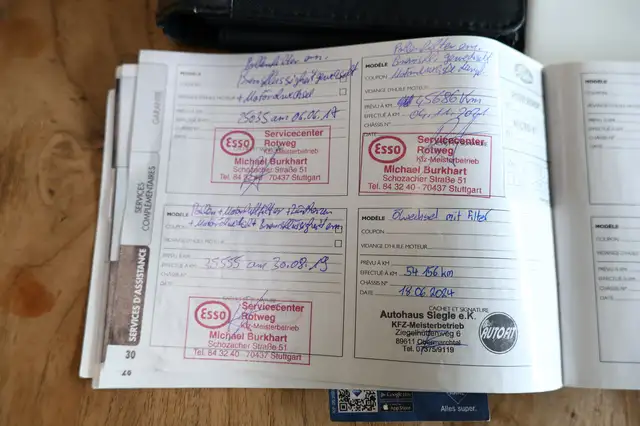 GARANTIE
SERVICES
COMPLÉMENTAIRES
SERVICES D'ASSISTANCE
30
28
Pollenfilter ern.
MODÈLE
Bremsflüssigkeit gewechselt
COUPON
+ Motorölwechsel
VIDANGE D'HUILE MOTEUR
PRÉVU À KM
EFFECTUÉ À KM
25035 am 06.06.17
CHÂSSIS N°
DATE
Esso
Servicecenter
Rotweg
Kfz-Meisterbetrieb
Michael Burkhart
Schozacher Straße 51
Tel. 84 32 40 - 70437 Stuttgart
MODÈLE
COUPON
VIDANGE D'HUILE MOTEUR
PRÉVU À KM
45686 km
EFFECTUÉ À KM
CHÂSSIS N°
DATE
Esso
Servicecenter
Rotweg
Kfz-Meisterbetrieb
Michael Burkhart
Schozacher Straße 51
Tel. 84 32 40 - 70437 Stuttgart
MODÈLE
COUPON
VIDANGE D'HUILE MOTEUR
PRÉVU À KM
EFFECTUÉ À KM
35535 am 30.08.19
CHÂSSIS N°
DATE
CACHET ET SIGNATURE
Esso
Servicecenter
Rotweg
Kfz-Meisterbetrieb
Michael Burkhart
Schozacher Straße 51
Tel. 84 32 40 - 70437 Stuttgart
MODÈLE Ölwechsel mit Filter
COUPON
VIDANGE D'HUILE MOTEUR
PRÉVU À KM
EFFECTUÉ À KM 54 166 km
CHÂSSIS N°
DATE 18.06.2024
CACHET ET SIGNATURE
Autohaus Siegle e.K.
KFZ-Meisterbetrieb
Ziegelhüttenweg 6
89611 Obermarchtal
Tel. 07375/9119
AUTOFIT
MODÈLE
COUPON
VIDANGE
PRÉVU À KM
EFFECTUÉ
CHÂSSIS N°
DATE
MODÈLE
COUPON
VIDANGE
PRÉVU À
EFFECTUÉ
CHÂSSIS
DATE
Google Play
App Store
Alles super.